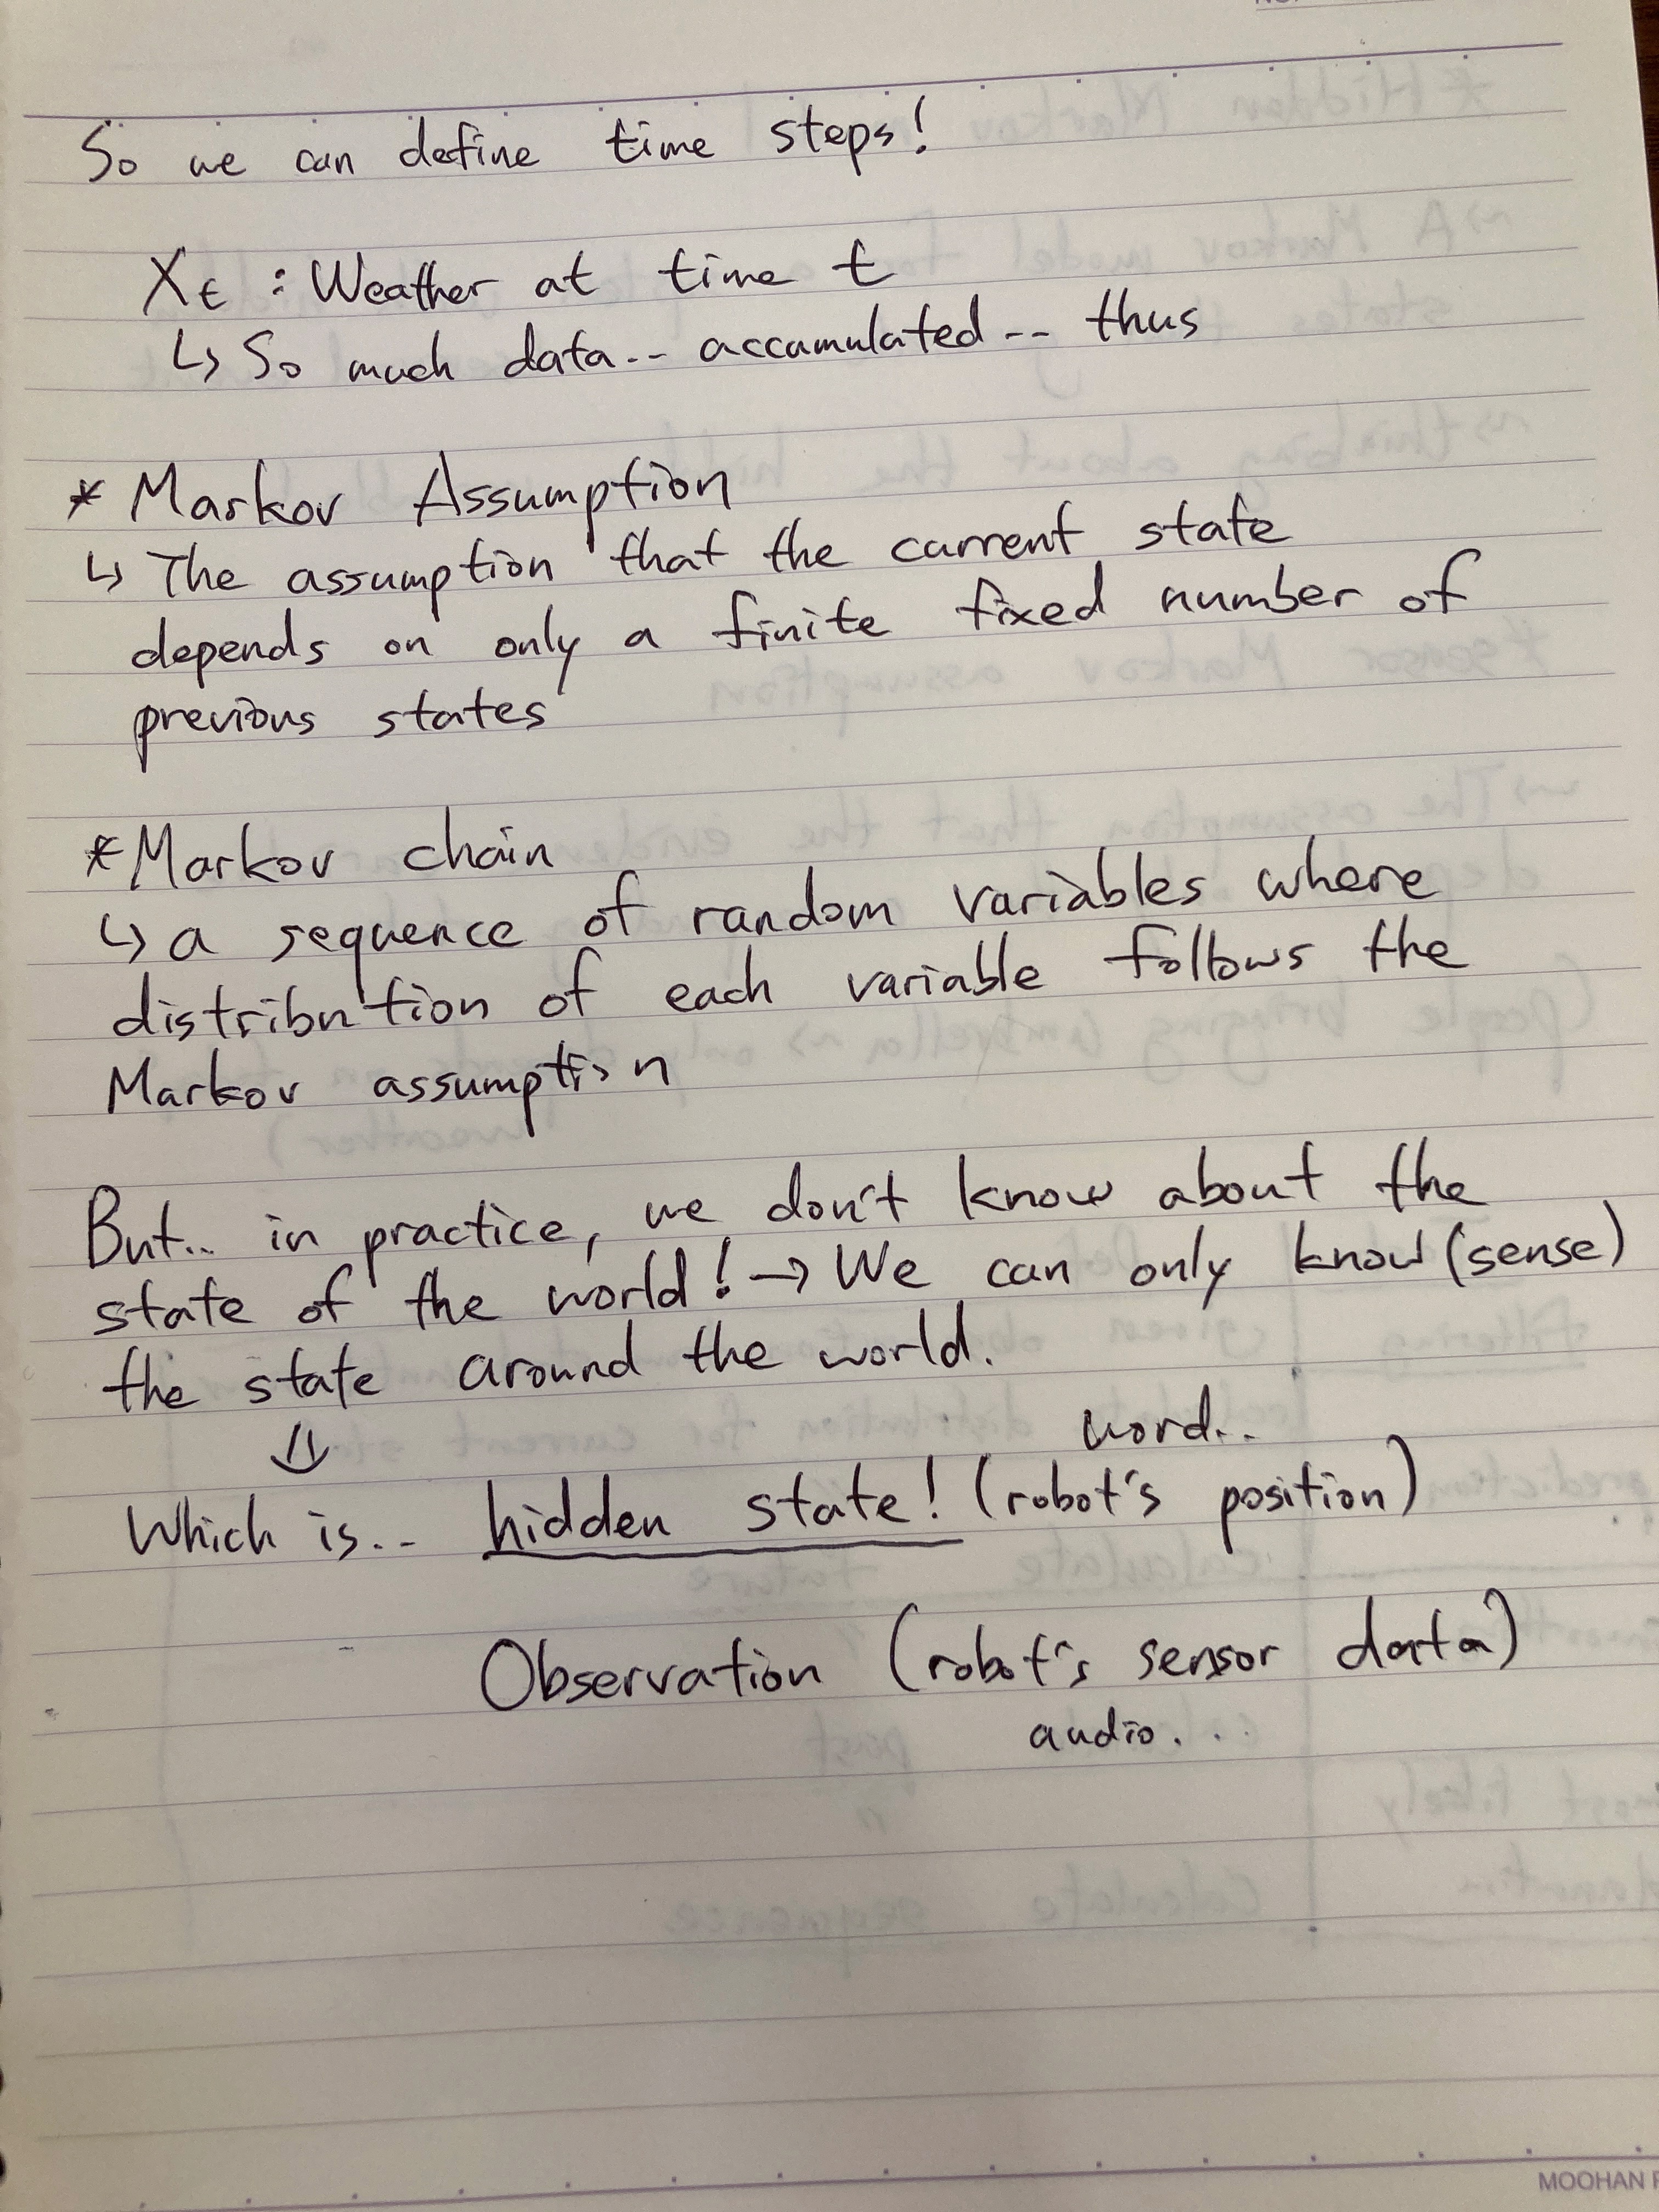 So we can define time steps!
Xt : Weather at time t
↳ So much data.. accumulated.. thus
* Markov Assumption
↳ The assumption that the current state
depends on only a finite fixed number of
previous states
* Markov chain
↳ a sequence of random variables where
distribution of each variable follows the
Markov assumption
But.. in practice, we don't know about the
state of the world! → We can only know (sense)
the state around the world.
⇓
word..
Which is.. hidden state! (robot's position)
Observation (robot's sensor data)
audio...
MOOHAN